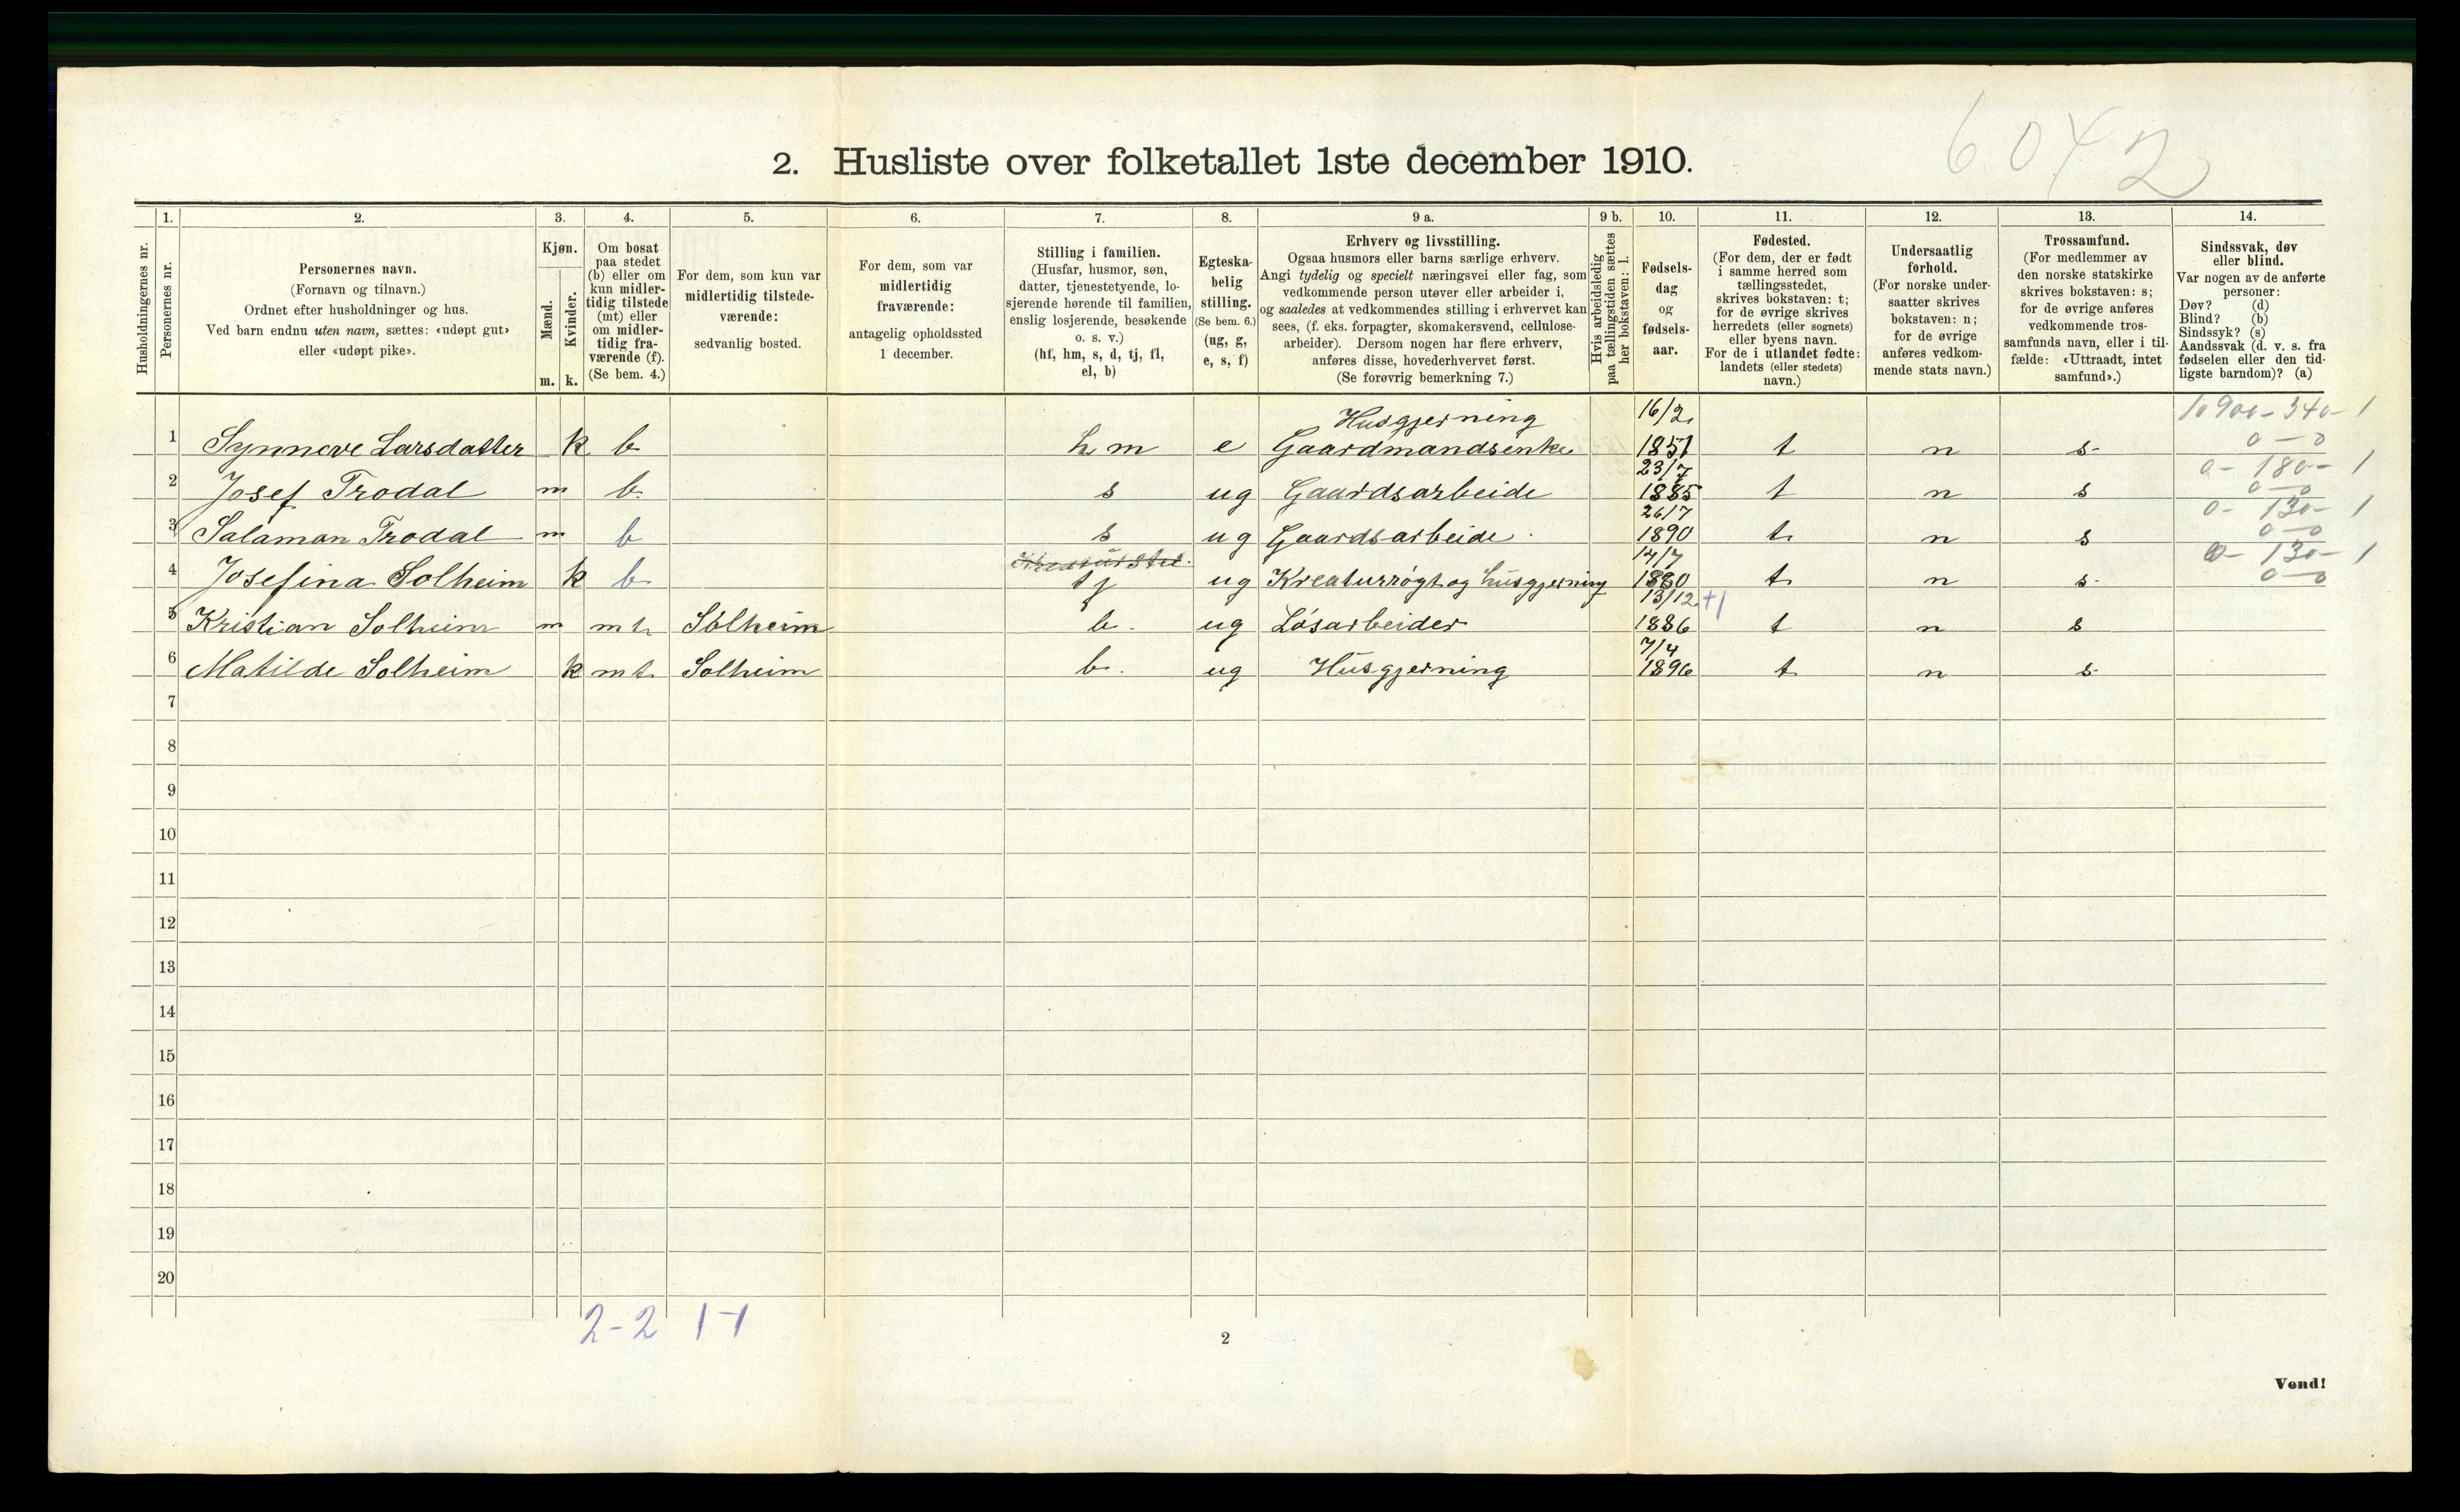 6042
2. Husliste over folketallet 1ste december 1910.
Husholdningernes nr.
1.
Personernes nr.
2.
Personernes navn.
(Fornavn og tilnavn.)
Ordnet efter husholdninger og hus.
Ved barn endnu uten navn, sættes: «udøpt gut»
eller «udøpt pike».
3.
Kjøn.
Mænd.
Kvinder.
m. k.
4.
Om bosat
paa stedet
(b) eller om
kun midler-
tidig tilstede
(mt) eller
om midler-
tidig fra-
værende (f).
(Se bem. 4.)
5.
For dem, som kun var
midlertidig tilstede-
værende:
sedvanlig bosted.
6.
For dem, som var
midlertidig
fraværende:
antagelig opholdssted
1 december.
7.
Stilling i familien.
(Husfar, husmor, søn,
datter, tjenestetyende, lo-
sjerende hørende til familien,
enslig losjerende, besøkende
o. s. v.)
(hf, hm, s, d, tj, fl,
el, b)
8.
Egteska-
belig
stilling.
(Se bem. 6.)
(ug, g,
e, s, f)
9 a.
Erhverv og livsstilling.
Ogsaa husmors eller barns særlige erhverv.
Angi tydelig og specielt næringsvei eller fag, som
vedkommende person utøver eller arbeider i,
og saaledes at vedkommendes stilling i erhvervet kan
sees, (f. eks. forpagter, skomakersvend, cellulose-
arbeider). Dersom nogen har flere erhverv,
anføres disse, hovederhvervet først.
(Se forøvrig bemerkning 7.)
9 b.
Hvis arbeidsledig
paa tællingstiden sættes
her bokstaven: l.
10.
Fødsels-
dag
og
fødsels-
aar.
11.
Fødested.
(For dem, der er født
i samme herred som
tællingsstedet,
skrives bokstaven: t;
for de øvrige skrives
herredets (eller sognets)
eller byens navn.
For de i utlandet fødte:
landets (eller stedets)
navn.)
12.
Undersaatlig
forhold.
(For norske under-
saatter skrives
bokstaven: n;
for de øvrige
anføres vedkom-
mende stats navn.)
13.
Trossamfund.
(For medlemmer av
den norske statskirke
skrives bokstaven: s;
for de øvrige anføres
vedkommende tros-
samfunds navn, eller i til-
fælde: «Uttraadt, intet
samfund».)
14.
Sindssvak, døv
eller blind.
Var nogen av de anførte
personer:
Døv? (d)
Blind? (b)
Sindssyk? (s)
Aandssvak (d. v. s. fra
fødselen eller den tid-
ligste barndom)? (a)
Husgjerning 16/2 10900-340-1
1 Synneve Larsdatter k b h m e Gaardmandsenke 1851 t n s- 0-0
23/7 0-180-1
2 Josef Trodal m b. s ug Gaardsarbeide 1885 t n s 0-0
26/7 0-130-1
3 Salamon Trodal m b s ug Gaardsarbeide. 1890 t. n s 0-0
14/7 0-130-1
4 Josefina Solheim k b tj ug Kreaturrögt og husgjerning 1880 t. n s- 0-0
13/12 +1
5 Kristian Solheim m mt. Solheim b. ug Lösarbeider 1886 t n s
7/4
6 Matilde Solheim k mt. Solheim b. ug Husgjerning 1896 t n s-
7
8
9
10
11
12
13
14
15
16
17
18
19
20
2-2 1-1
2
Vend!